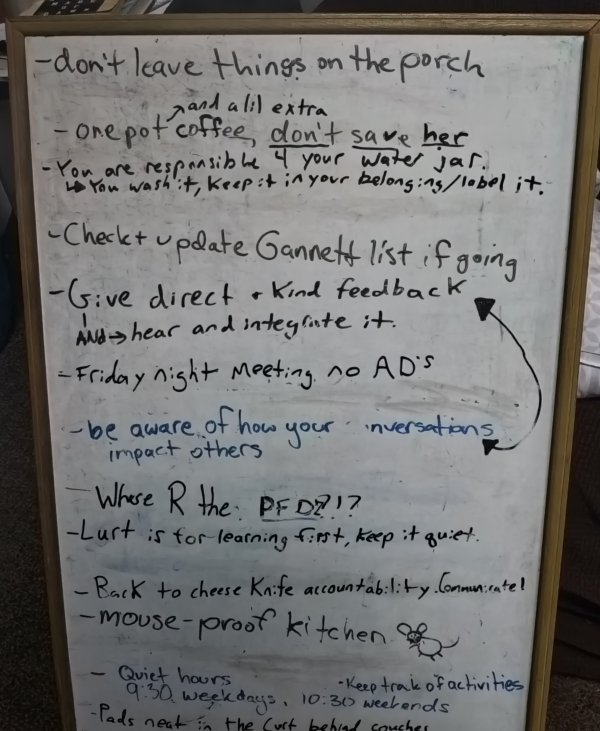 -don't leave things on the porch
and a lil extra
- one pot coffee, don't save her
-You are responsible 4 your water jar.
↳You wash it, keep it in your belonging/label it.
-Check + update Gannett list if going
-Give direct + kind feedback
AND→ hear and integrate it.
-Friday night Meeting no AD's
-be aware of how your nversations
impact others
-Where R the PFDZ?!?
-Lurt is for learning first, keep it quiet.
-Back to cheese Knife accountability. Communicate!
-mouse-proof kitchen
- Quiet hours
9:30 weekdays, 10:30 weekends
-Keep trak of activities
-Pads neat in the Lurt behind couches